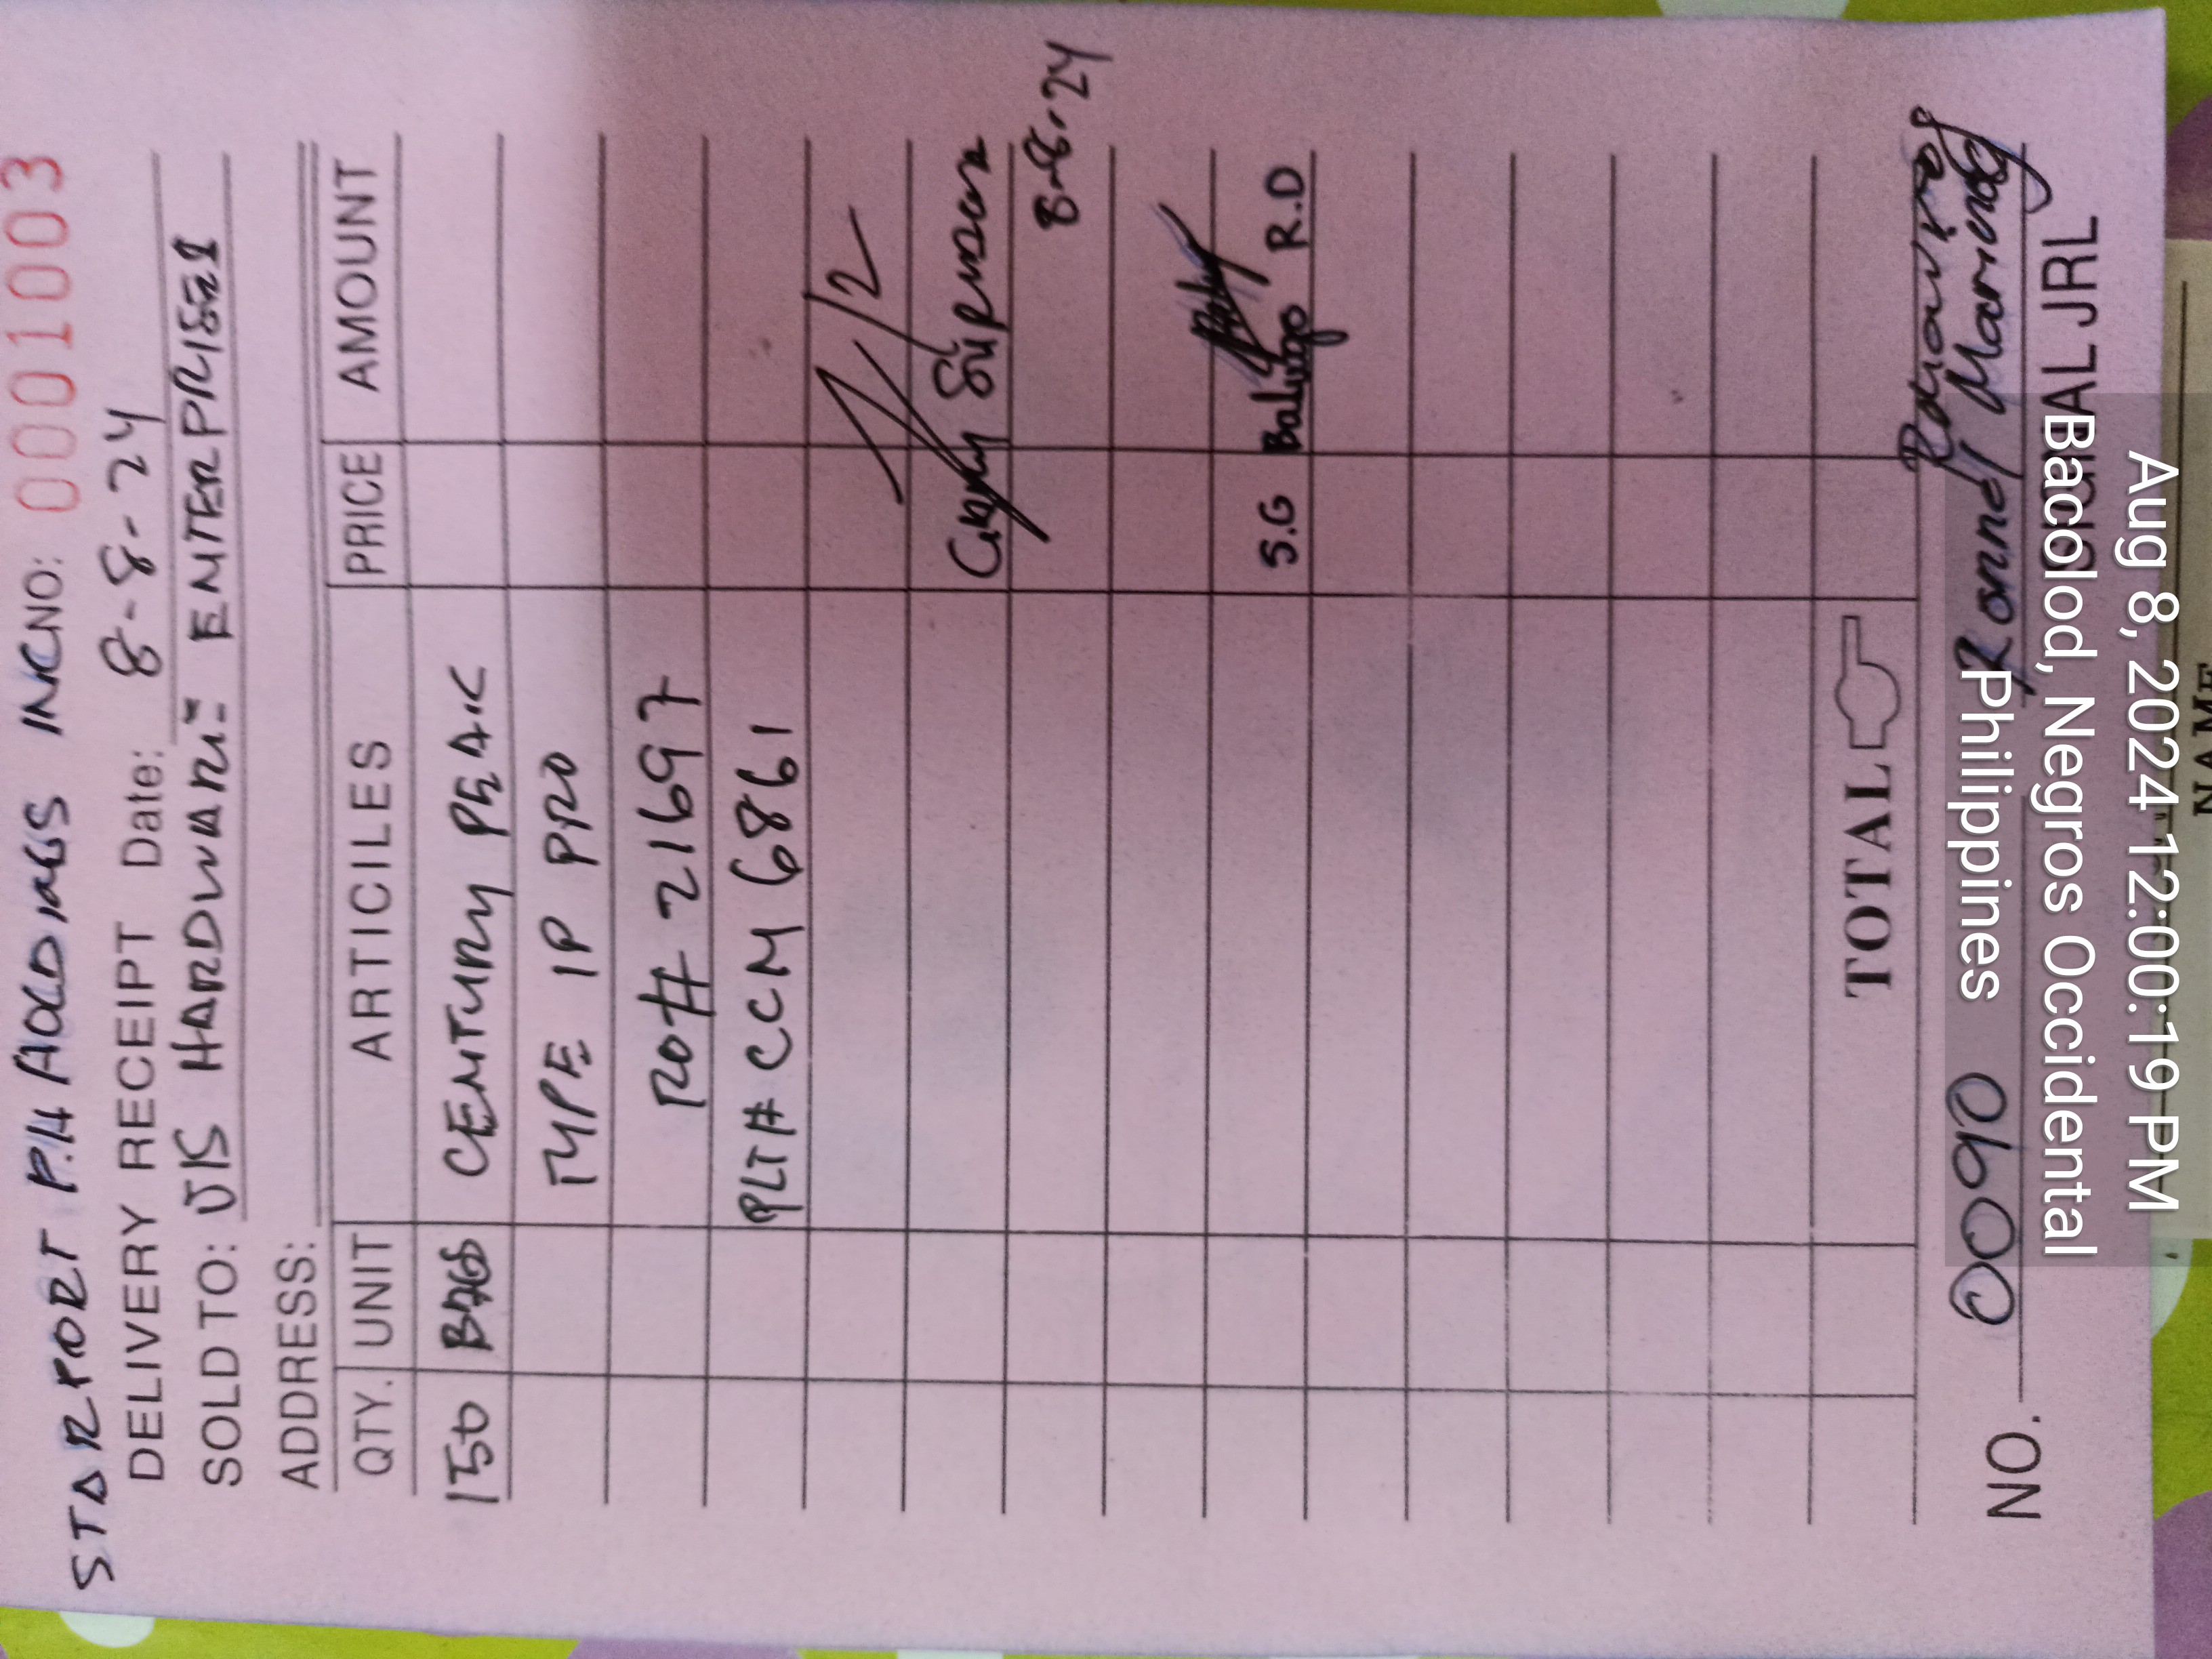 STARPORT P.H HOLDINGS INC NO: 0001003
DELIVERY RECEIPT Date: 8-8-24
SOLD TO: JKS HARDWARE ENTERPRISES
ADDRESS:
QTY. UNIT ARTICILES PRICE AMOUNT
150 BAGS CENTURY PEAK
TYPE 1P PRO
RO# 21697
PLT# CCM 6861
8-8-24
S.G Balingo R.D
TOTAL
NO. 0090
Ronnel
BAL JRL
Aug 8, 2024 12:00:19 PM
Bacolod, Negros Occidental
Philippines
NAME